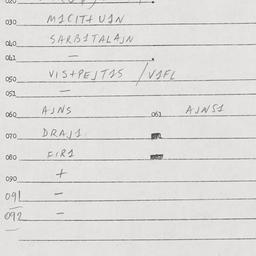 030 M1CIT+V1N
040 SARB1TALAJN
041 —
050 VIS+PEJT1S / V1FL
051 —
060 AJNS 061 AJNS1
070 DRAJ1
080 FIR1
090 +
091 —
092 —